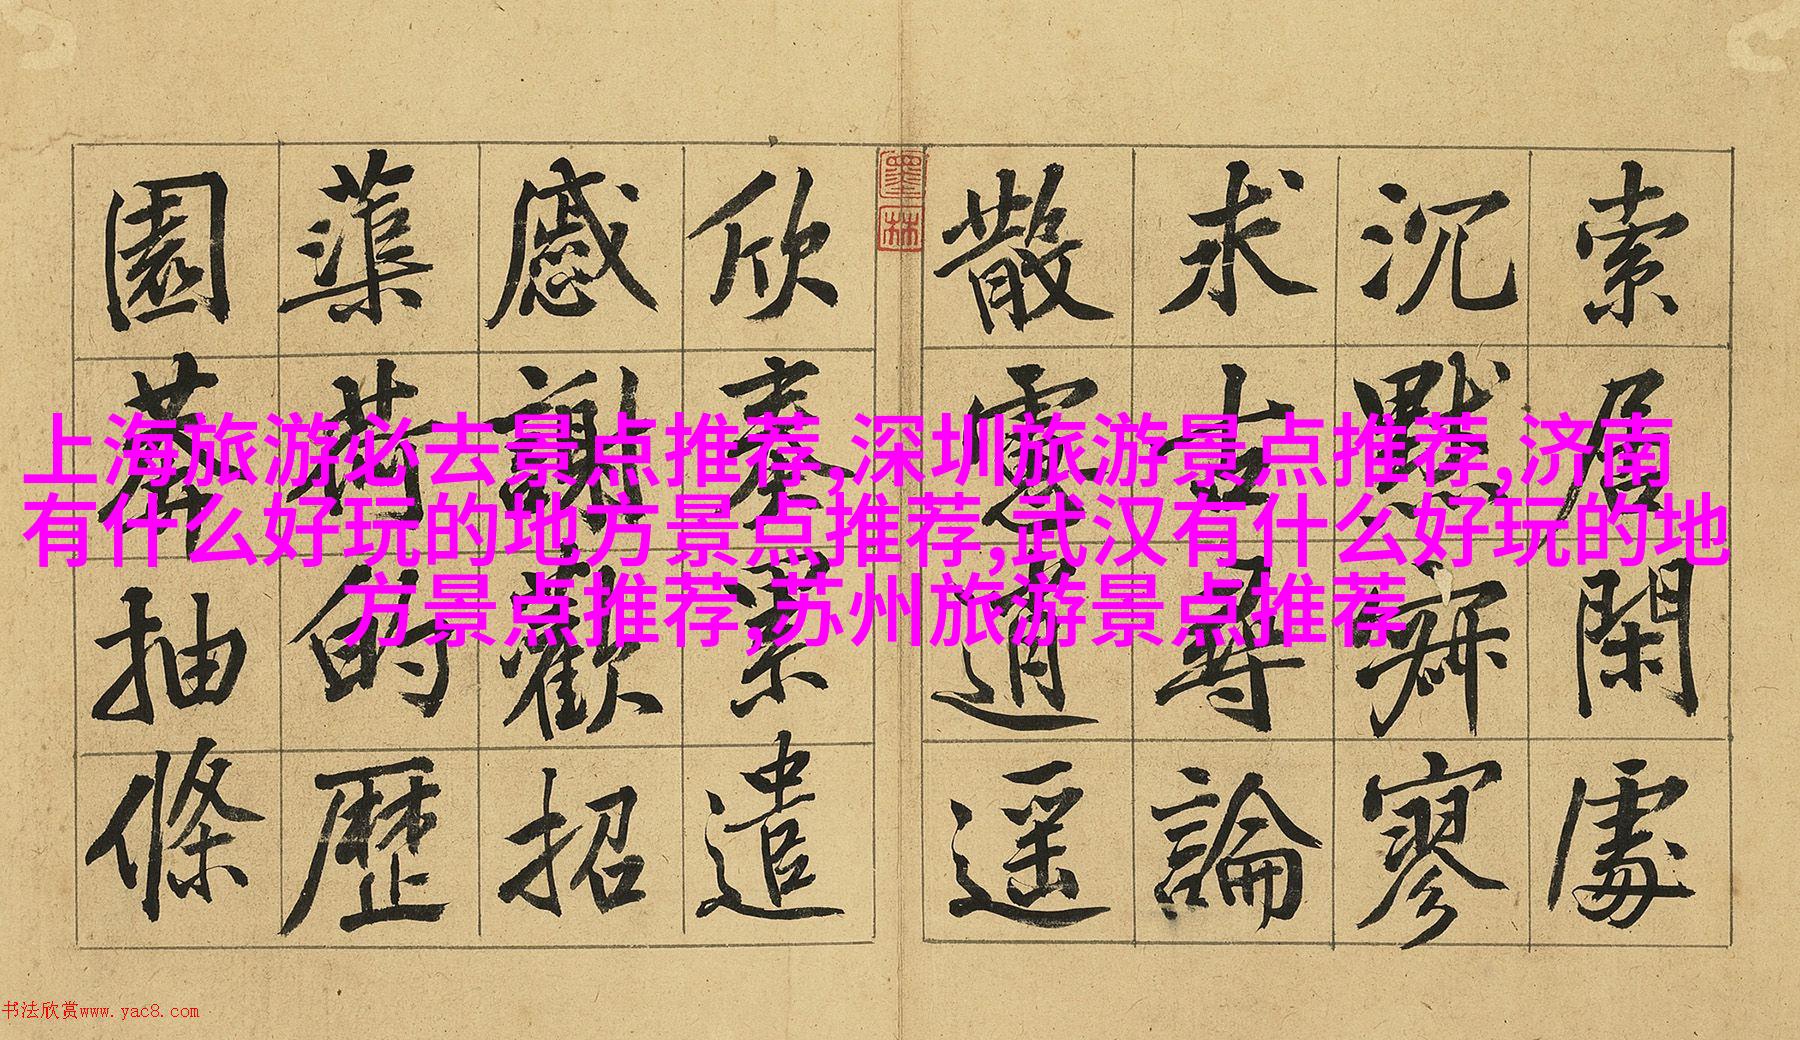 索居閑處
沉默寂寥
求古尋論
散慮逍遥
欣奏累遣
慼謝歡招
蕖荷的歷
園莽抽條
墨林
上海旅游必去景点推荐,深圳旅游景点推荐,济南
有什么好玩的地方景点推荐,武汉有什么好玩的地
方景点推荐,苏州旅游景点推荐
书法欣赏www.yac8.com